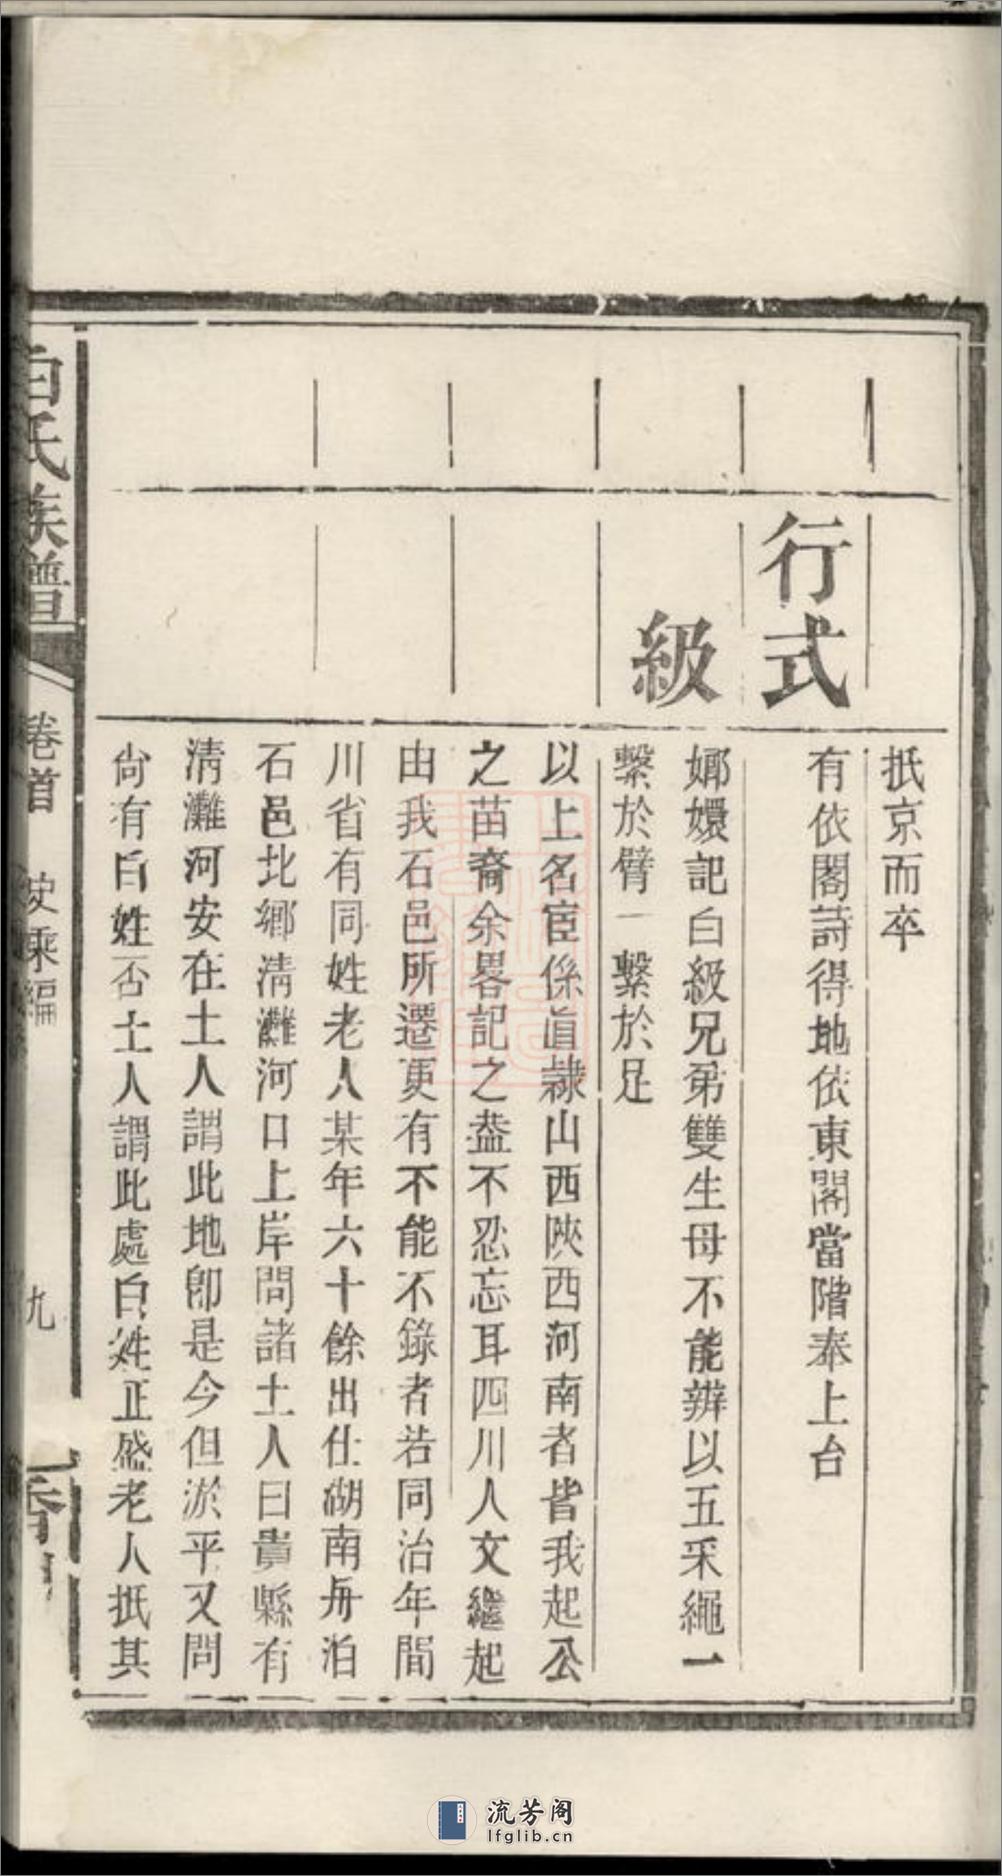 抵京而卒
行式
有依閣詩得地依東閣當階奉上台
級
嫏嬛記白級兄弟雙生母不能辨以五采繩一
繫於臂一繫於足
以上名宦係直隸山西陝西河南者皆我起公
之苗裔余畧記之葢不忍忘耳四川人文繼起
由我石邑所遷更有不能不錄者若同治年間
川省有同姓老人某年六十餘出仕湖南舟泊
石邑北鄉清灘河口上岸問諸土人曰貴縣有
清灘河安在土人謂此地卽是今但淤平又問
尙有白姓否土人謂此處白姓正盛老人抵其
白氏族譜
卷首
史乘編
九
流芳阁
lfglib.cn